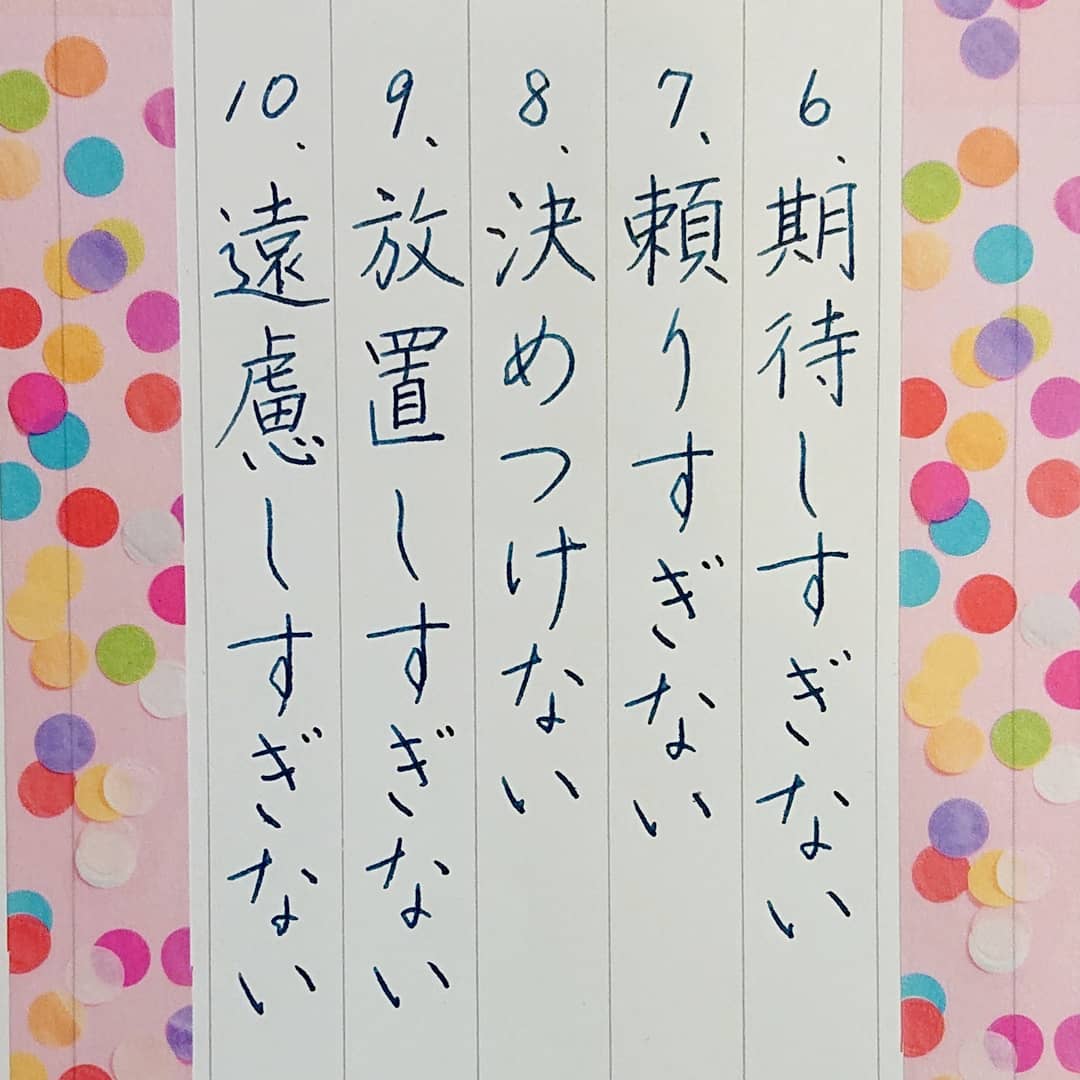 6、期待しすぎない
7、頼りすぎない
8、決めつけない
9、放置しすぎない
10、遠慮しすぎない